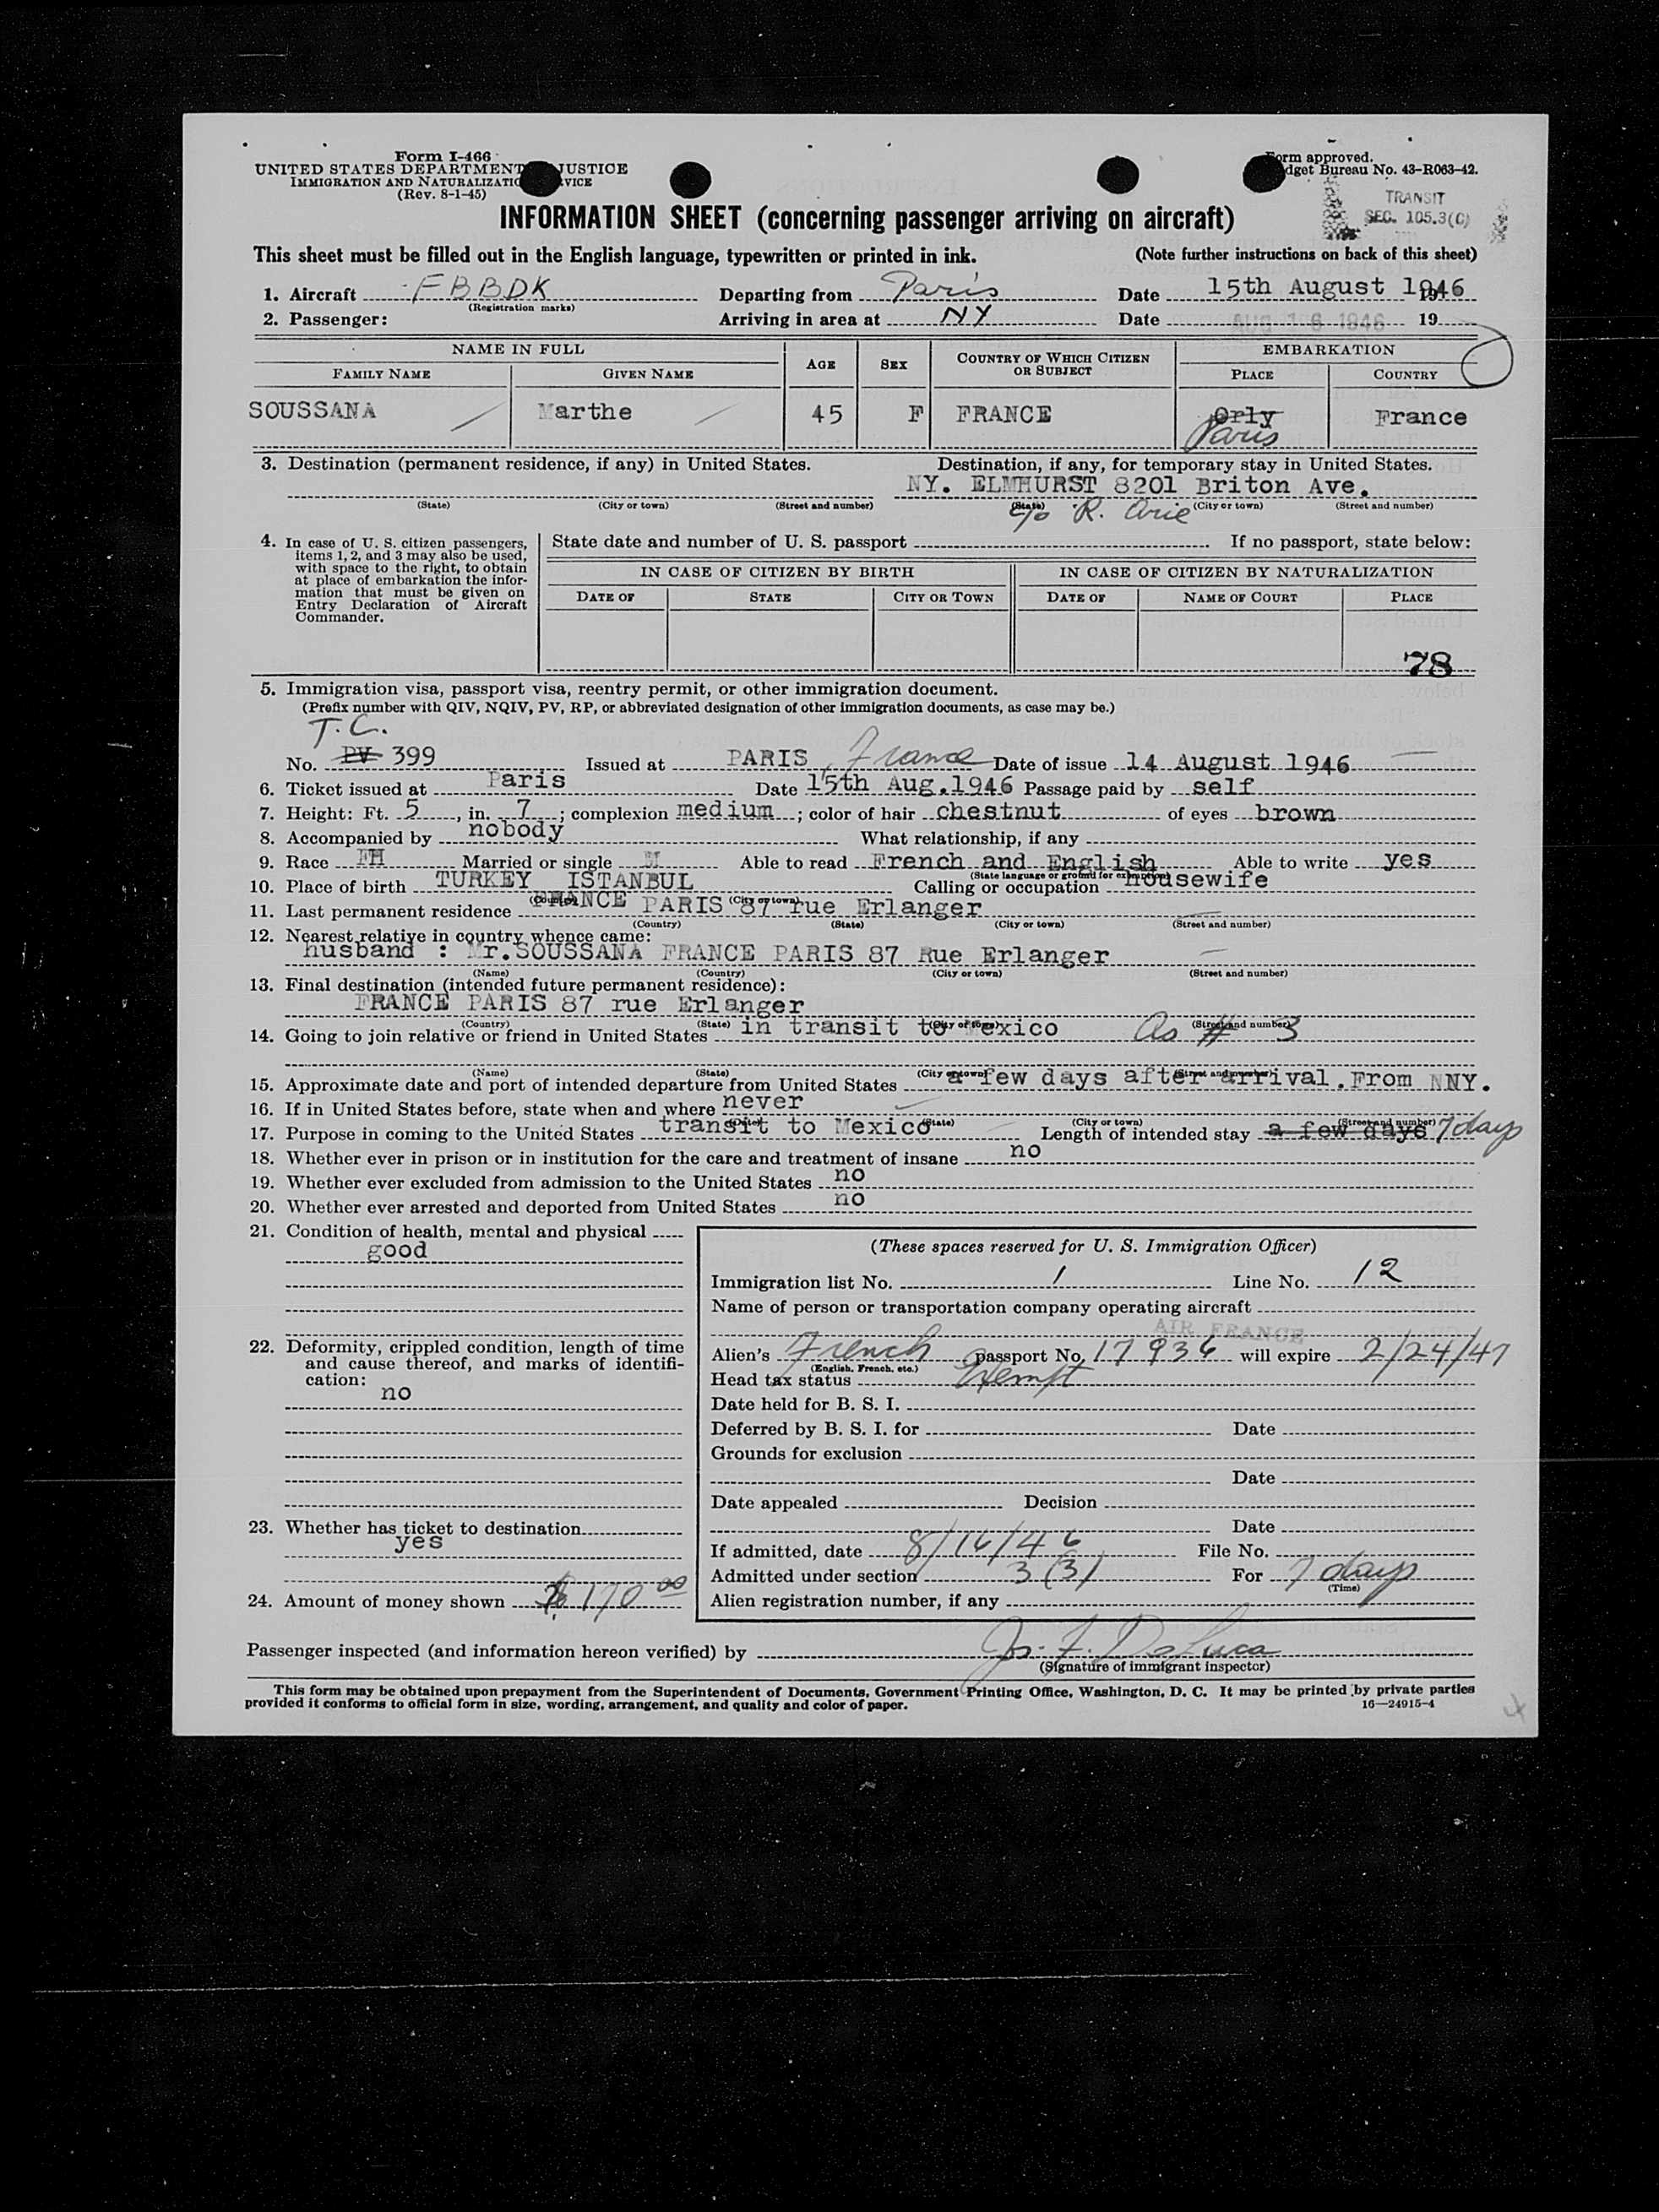 Form I-466
UNITED STATES DEPARTMENT JUSTICE
IMMIGRATION AND NATURALIZATIO VICE
(Rev. 8-1-45)
orm approved.
dget Bureau No. 43-R063-42.
TRANSIT
SEC. 105.3(C)
INFORMATION SHEET (concerning passenger arriving on aircraft)
This sheet must be filled out in the English language, typewritten or printed in ink. (Note further instructions on back of this sheet)
1. Aircraft FBBDK Departing from Paris Date 15th August 1946
(Registration marks)
2. Passenger: Arriving in area at NY Date AUG 16 1946 19
NAME IN FULL AGE SEX COUNTRY OF WHICH CITIZEN OR SUBJECT EMBARKATION
FAMILY NAME GIVEN NAME PLACE COUNTRY
SOUSSANA Marthe 45 F FRANCE Orly France
Paris
3. Destination (permanent residence, if any) in United States. Destination, if any, for temporary stay in United States.
NY. ELMHURST 8201 Briton Ave.
(State) (City or town) (Street and number) (State) (City or town) (Street and number)
c/o R. Arie
4. In case of U. S. citizen passengers, items 1, 2, and 3 may also be used, with space to the right, to obtain at place of embarkation the information that must be given on Entry Declaration of Aircraft Commander.
State date and number of U. S. passport If no passport, state below:
IN CASE OF CITIZEN BY BIRTH IN CASE OF CITIZEN BY NATURALIZATION
DATE OF STATE CITY OR TOWN DATE OF NAME OF COURT PLACE
78
5. Immigration visa, passport visa, reentry permit, or other immigration document.
(Prefix number with QIV, NQIV, PV, RP, or abbreviated designation of other immigration documents, as case may be.)
T.C.
No. PV 399 Issued at PARIS, France Date of issue 14 August 1946
6. Ticket issued at Paris Date 15th Aug.1946 Passage paid by self
7. Height: Ft. 5, in. 7; complexion medium; color of hair chestnut of eyes brown
8. Accompanied by nobody What relationship, if any
9. Race FH Married or single M Able to read French and English Able to write yes
(State language or ground for exemption)
10. Place of birth TURKEY ISTANBUL Calling or occupation housewife
(Country) (City or town)
11. Last permanent residence FRANCE PARIS 87 rue Erlanger
(Country) (State) (City or town) (Street and number)
12. Nearest relative in country whence came:
husband : Mr.SOUSSANA FRANCE PARIS 87 Rue Erlanger
(Name) (Country) (City or town) (Street and number)
13. Final destination (intended future permanent residence):
FRANCE PARIS 87 rue Erlanger
(Country) (State) (City or town) (Street and number)
14. Going to join relative or friend in United States in transit to Mexico As # 3
(Name) (State) (City or town) (Street and number)
15. Approximate date and port of intended departure from United States a few days after arrival.From NNY.
16. If in United States before, state when and where never
(Date) (State) (City or town) (Street and number)
17. Purpose in coming to the United States transit to Mexico Length of intended stay a few days 7 days
18. Whether ever in prison or in institution for the care and treatment of insane no
19. Whether ever excluded from admission to the United States no
20. Whether ever arrested and deported from United States no
21. Condition of health, mental and physical
good
22. Deformity, crippled condition, length of time and cause thereof, and marks of identification:
no
23. Whether has ticket to destination
yes
24. Amount of money shown $170.00
(These spaces reserved for U. S. Immigration Officer)
Immigration list No. 1 Line No. 12
Name of person or transportation company operating aircraft
AIR FRANCE
Alien's French passport No. 17936 will expire 2/24/47
(English, French, etc.)
Head tax status Exempt
Date held for B. S. I.
Deferred by B. S. I. for Date
Grounds for exclusion
Date
Date appealed Decision
Date
If admitted, date 8/16/46 File No.
Admitted under section 3(3) For 7 days
(Time)
Alien registration number, if any
Passenger inspected (and information hereon verified) by Js. F. DeLuca
(Signature of immigrant inspector)
This form may be obtained upon prepayment from the Superintendent of Documents, Government Printing Office, Washington, D. C. It may be printed by private parties
provided it conforms to official form in size, wording, arrangement, and quality and color of paper. 16—24915-4